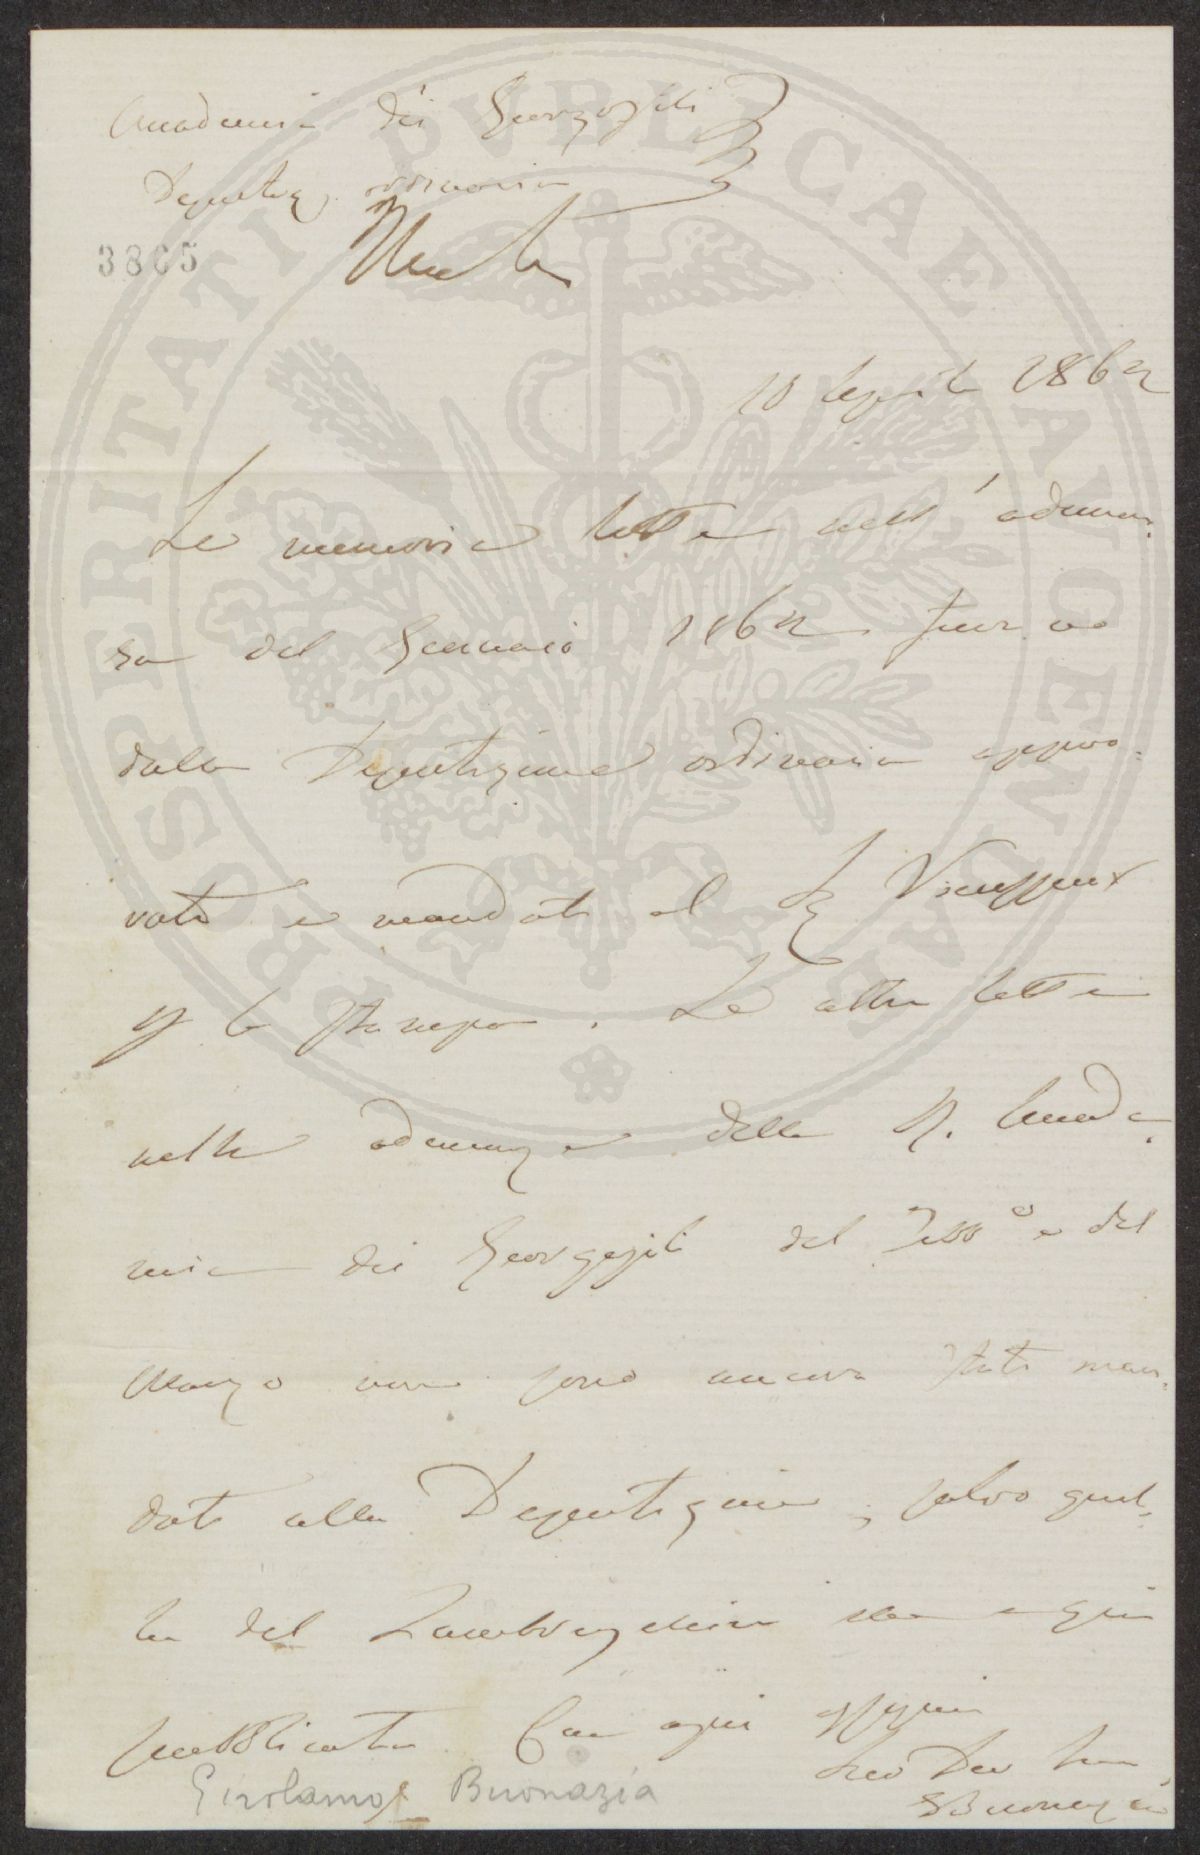 Accademia dei Georgofili
Deputaz. ordinaria
3865
1862
Le memorie lette nell'adunan.
za del Gennaio 1862 furono
dalla Deputazione ordinaria appro.
vate e mandate al Vieusseux
p la stampa. Le altre lette
nelle adunanze della R. Accade.
mia dei Georgofili del Febbo e del
Marzo non sono ancora state man.
date alla Deputazione, salvo quel.
la del Lambruschini che è già
pubblicata. Con ogni
Suo Dev
G Buonazia
Girolamo Buonazia
PROSPERITATI PVBLICAE AVGENDAE